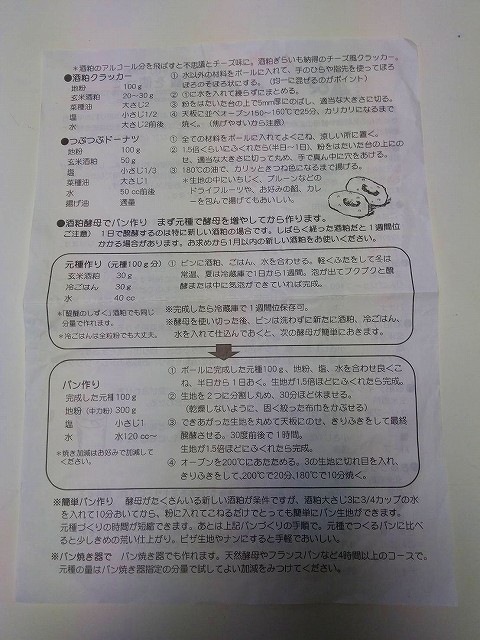 *酒粕のアルコール分を飛ばすと不思議とチーズ味に。酒粕ぎらいも納得のチーズ風クラッカー。
●酒粕クラッカー
地粉 100g
玄米酒粕 20〜30g
菜種油 大さじ2
塩 小さじ1/2
水 大さじ2前後
① 水以外の材料をボールに入れて、手のひらや指先を使ってぽろ
ぽろのそぼろ状にする。(均一に混ぜるのがポイント)
② ①に水を入れて練らずにまとめる。
③ 粉をはたいた台の上で5mm厚にのばし、適当な大きさに切る。
④ 天板に並べオーブン150〜160℃で25分、カリカリになるまで
焼く。(焦げやすいから注意)
●つぶつぶドーナツ
地粉 100g
玄米酒粕 50g
塩 小さじ1/3
菜種油 大さじ1
水 50cc前後
揚げ油 適量
① 全ての材料をボールに入れてよくこね、涼しい所に置く。
② 1.5倍くらいにふくれたら(半日〜1日)、粉をはたいた台の上にの
せ、適当な大きさに切って丸め、手で真ん中に穴をあける。
③ 180℃の油で、カリッときつね色になるまで揚げる。
*生地の中にいちじく、プルーンなどの
ドライフルーツや、お好みの餡、カレ
ーを包んで揚げてもおいしい。
●酒粕酵母でパン作り まず元種で酵母を増やしてから作ります。
ご注意) 1日で醗酵するのは特に新しい酒粕の場合です。しばらく経った酒粕だと1週間位
かかる場合があります。お求めから1月以内の新しい酒粕をお使いください。
元種作り (元種100g分)
玄米酒粕 30g
冷ごはん 30g
水 40cc
*「醍醐のしずく」酒粕でも同じ
分量で作れます。
*冷ごはんは全粒粉でも大丈夫。
① ビンに酒粕、ごはん、水を合わせる。軽くふたをして冬は
常温、夏は冷蔵庫で1日から1週間。泡が出てプクプクと醗
酵または中に気泡ができていれば完成。
※完成したら冷蔵庫で1週間位保存可。
※酵母を使い切った後、ビンは洗わずに新たに酒粕、冷ごはん、
水を入れて仕込んでおくと、次の酵母が簡単におきます。
パン作り
完成した元種100g
地粉(中力粉)300g
塩 小さじ1
水 水120cc〜
*焼き加減はお好みで加減して
ください。
① ボールに完成した元種100g、地粉、塩、水を合わせ良くこ
ね、半日から1日おく。生地が1.5倍ほどにふくれたら完成。
② 生地を2つに分割し丸め、30分ほど休ませる。
(乾燥しないように、固く絞った布巾をかぶせる)
③ できあがった生地を丸めて天板にのせ、きりふきをして最終
醗酵させる。30度前後で1時間。
生地が1.5倍ほどにふくれたら完成。
④ オーブンを200℃にあたためる。3の生地に切れ目を入れ、
きりふきをして、200℃で20分、180℃で10分焼く。
※簡単パン作り 酵母がたくさんいる新しい酒粕が条件ですが、酒粕大さじ3に3/4カップの水
を入れて10分おいてから、粉に入れてこねるだけでとっても簡単にパン生地ができます。
元種づくりの時間が短縮できます。あとは上記パンづくりの手順で。元種でつくるパンに比べ
ると少しきめの荒い仕上がり。ピザ生地やナンにすると手軽でおいしい。
※パン焼き器で パン焼き器でも作れます。天然酵母やフランスパンなど4時間以上のコースで。
元種の量はパン焼き器指定の分量で試してよい加減をみつけてください。